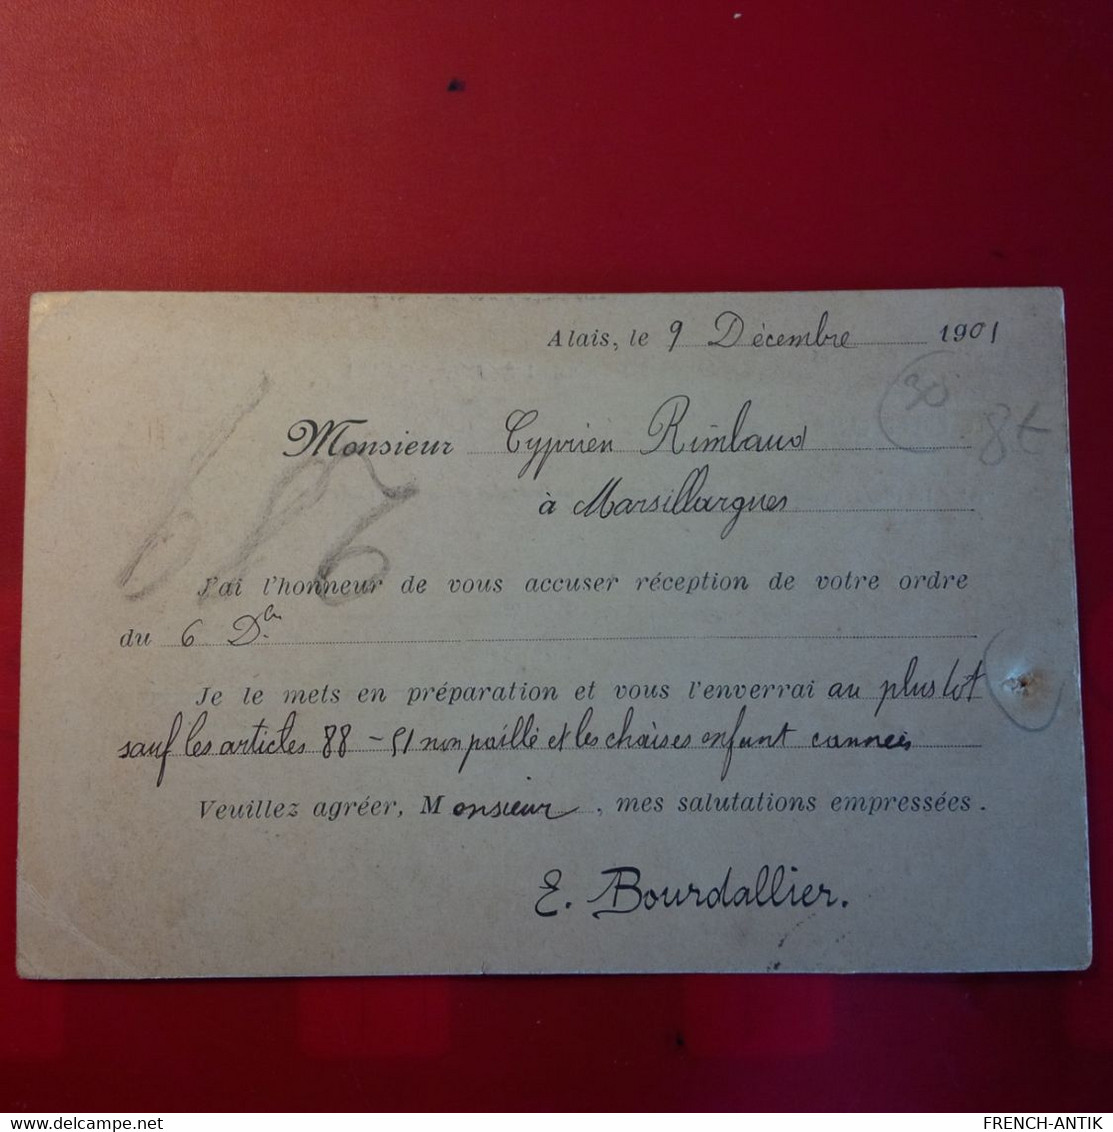 Alais, le 9 Décembre 1901
30
8t
Monsieur Cyprien Rimbaud
à Marsillargues
J'ai l'honneur de vous accuser réception de votre ordre
du 6 D.bre
Je le mets en préparation et vous l'enverrai au plus tôt
sauf les articles 88 - 51 non paillé et les chaises enfant cannées
Veuillez agréer, Monsieur, mes salutations empressées.
E. Bourdallier.
FRENCH-ANTIK
delcampe.net